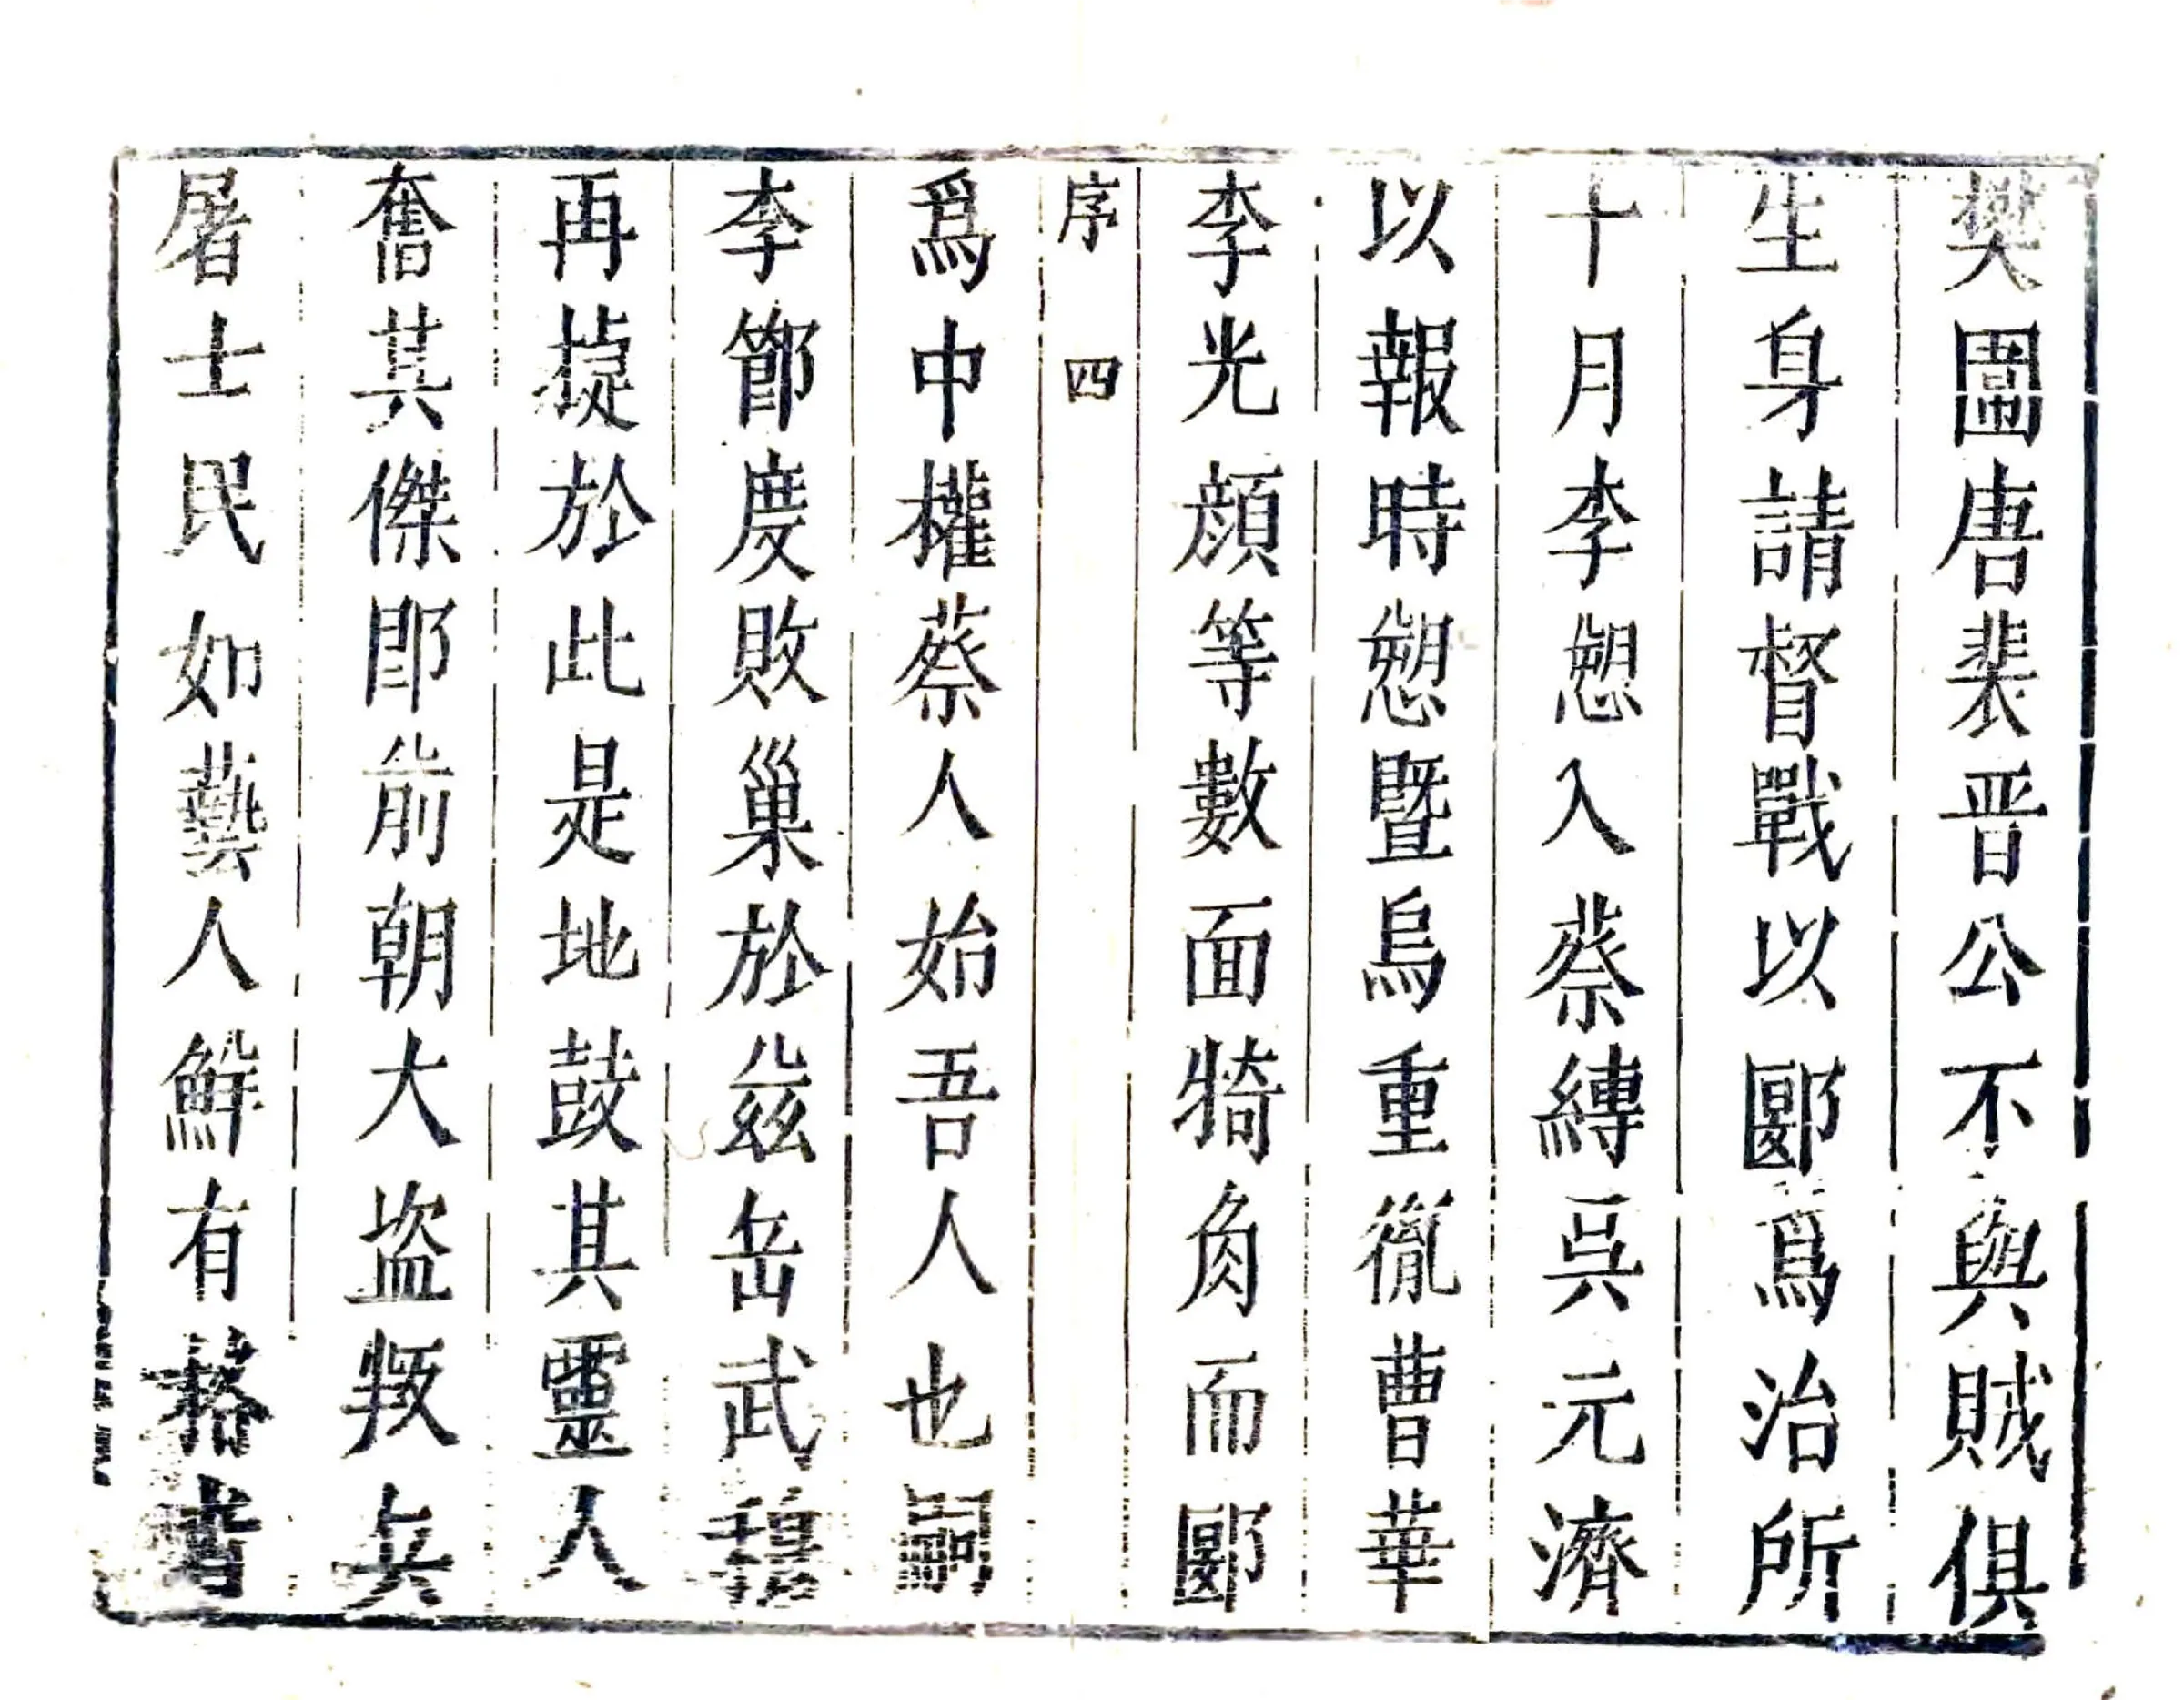 樊圖唐裴晋公不與賊俱
生身請督戰以郾爲治所
十月李愬入蔡縛吳元濟
以報時愬暨烏重胤曹華
李光顔等數面犄角而郾
序 四
爲中權蔡人始吾人也嗣
李節度敗巢於兹岳武穆
再㨗於此是地鼓其靈人
奮其傑即前朝大盗叛兵
屠士民如蓺人鮮有